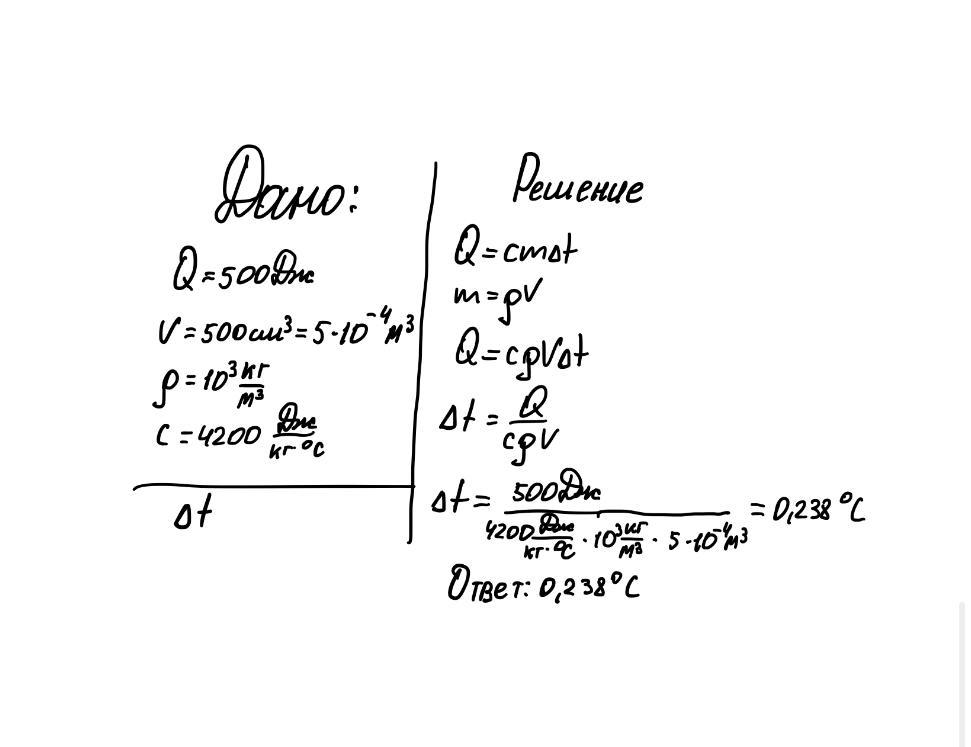 Дано:
Q = 500 Дж
V = 500 см³ = 5·10⁻⁴ м³
ρ = 10³ кг/м³
c = 4200 Дж/кг °C
Δt
Решение
Q = cmΔt
m = ρV
Q = cρVΔt
Δt = Q/cρV
Δt = 500 Дж/4200 Дж/кг·°C · 10³ кг/м³ · 5·10⁻⁴ м³ = 0,238 °C
Ответ: 0,238 °C